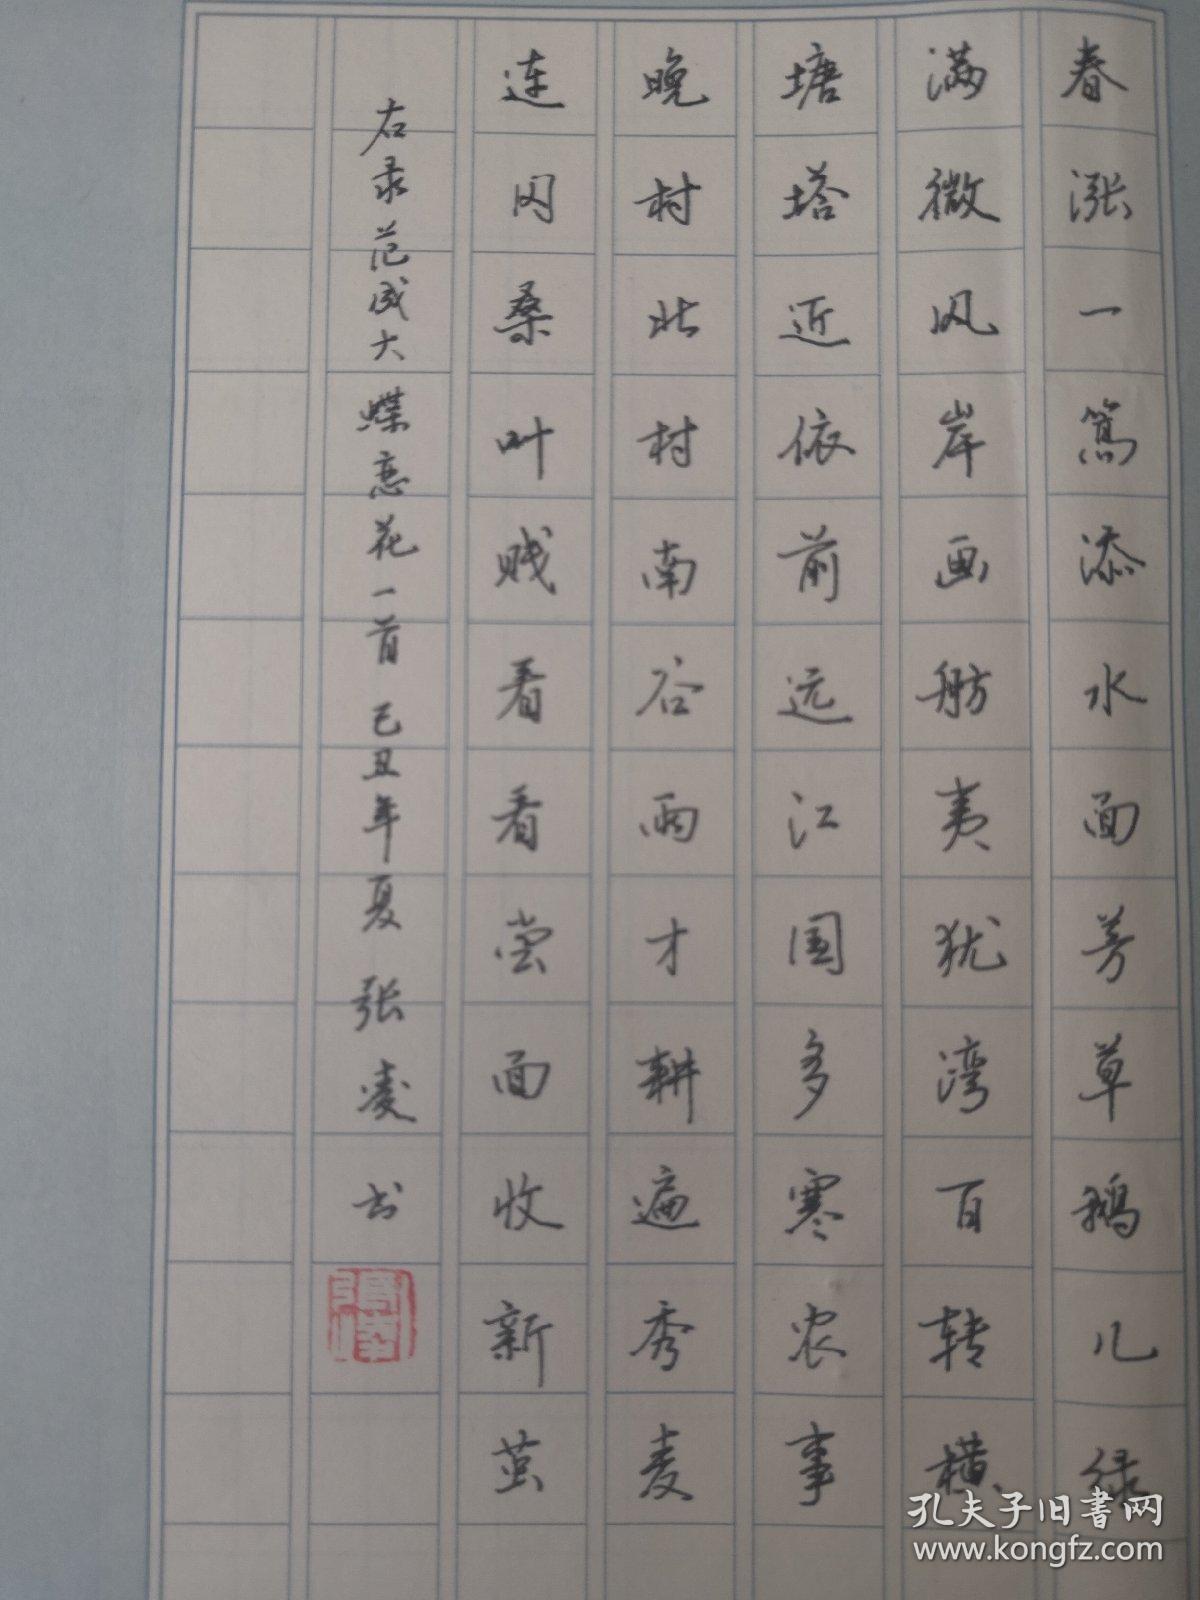 春涨一篙添水面芳草鹅儿绿
满微风岸画舫夷犹湾百转横
塘塔近依前远江国多寒农事
晚村北村南谷雨才耕遍秀麦
连冈桑叶贱看看尝面收新茧
右录范成大蝶恋花一首己丑年夏张凌书
孔夫子旧书网
www.kongfz.com